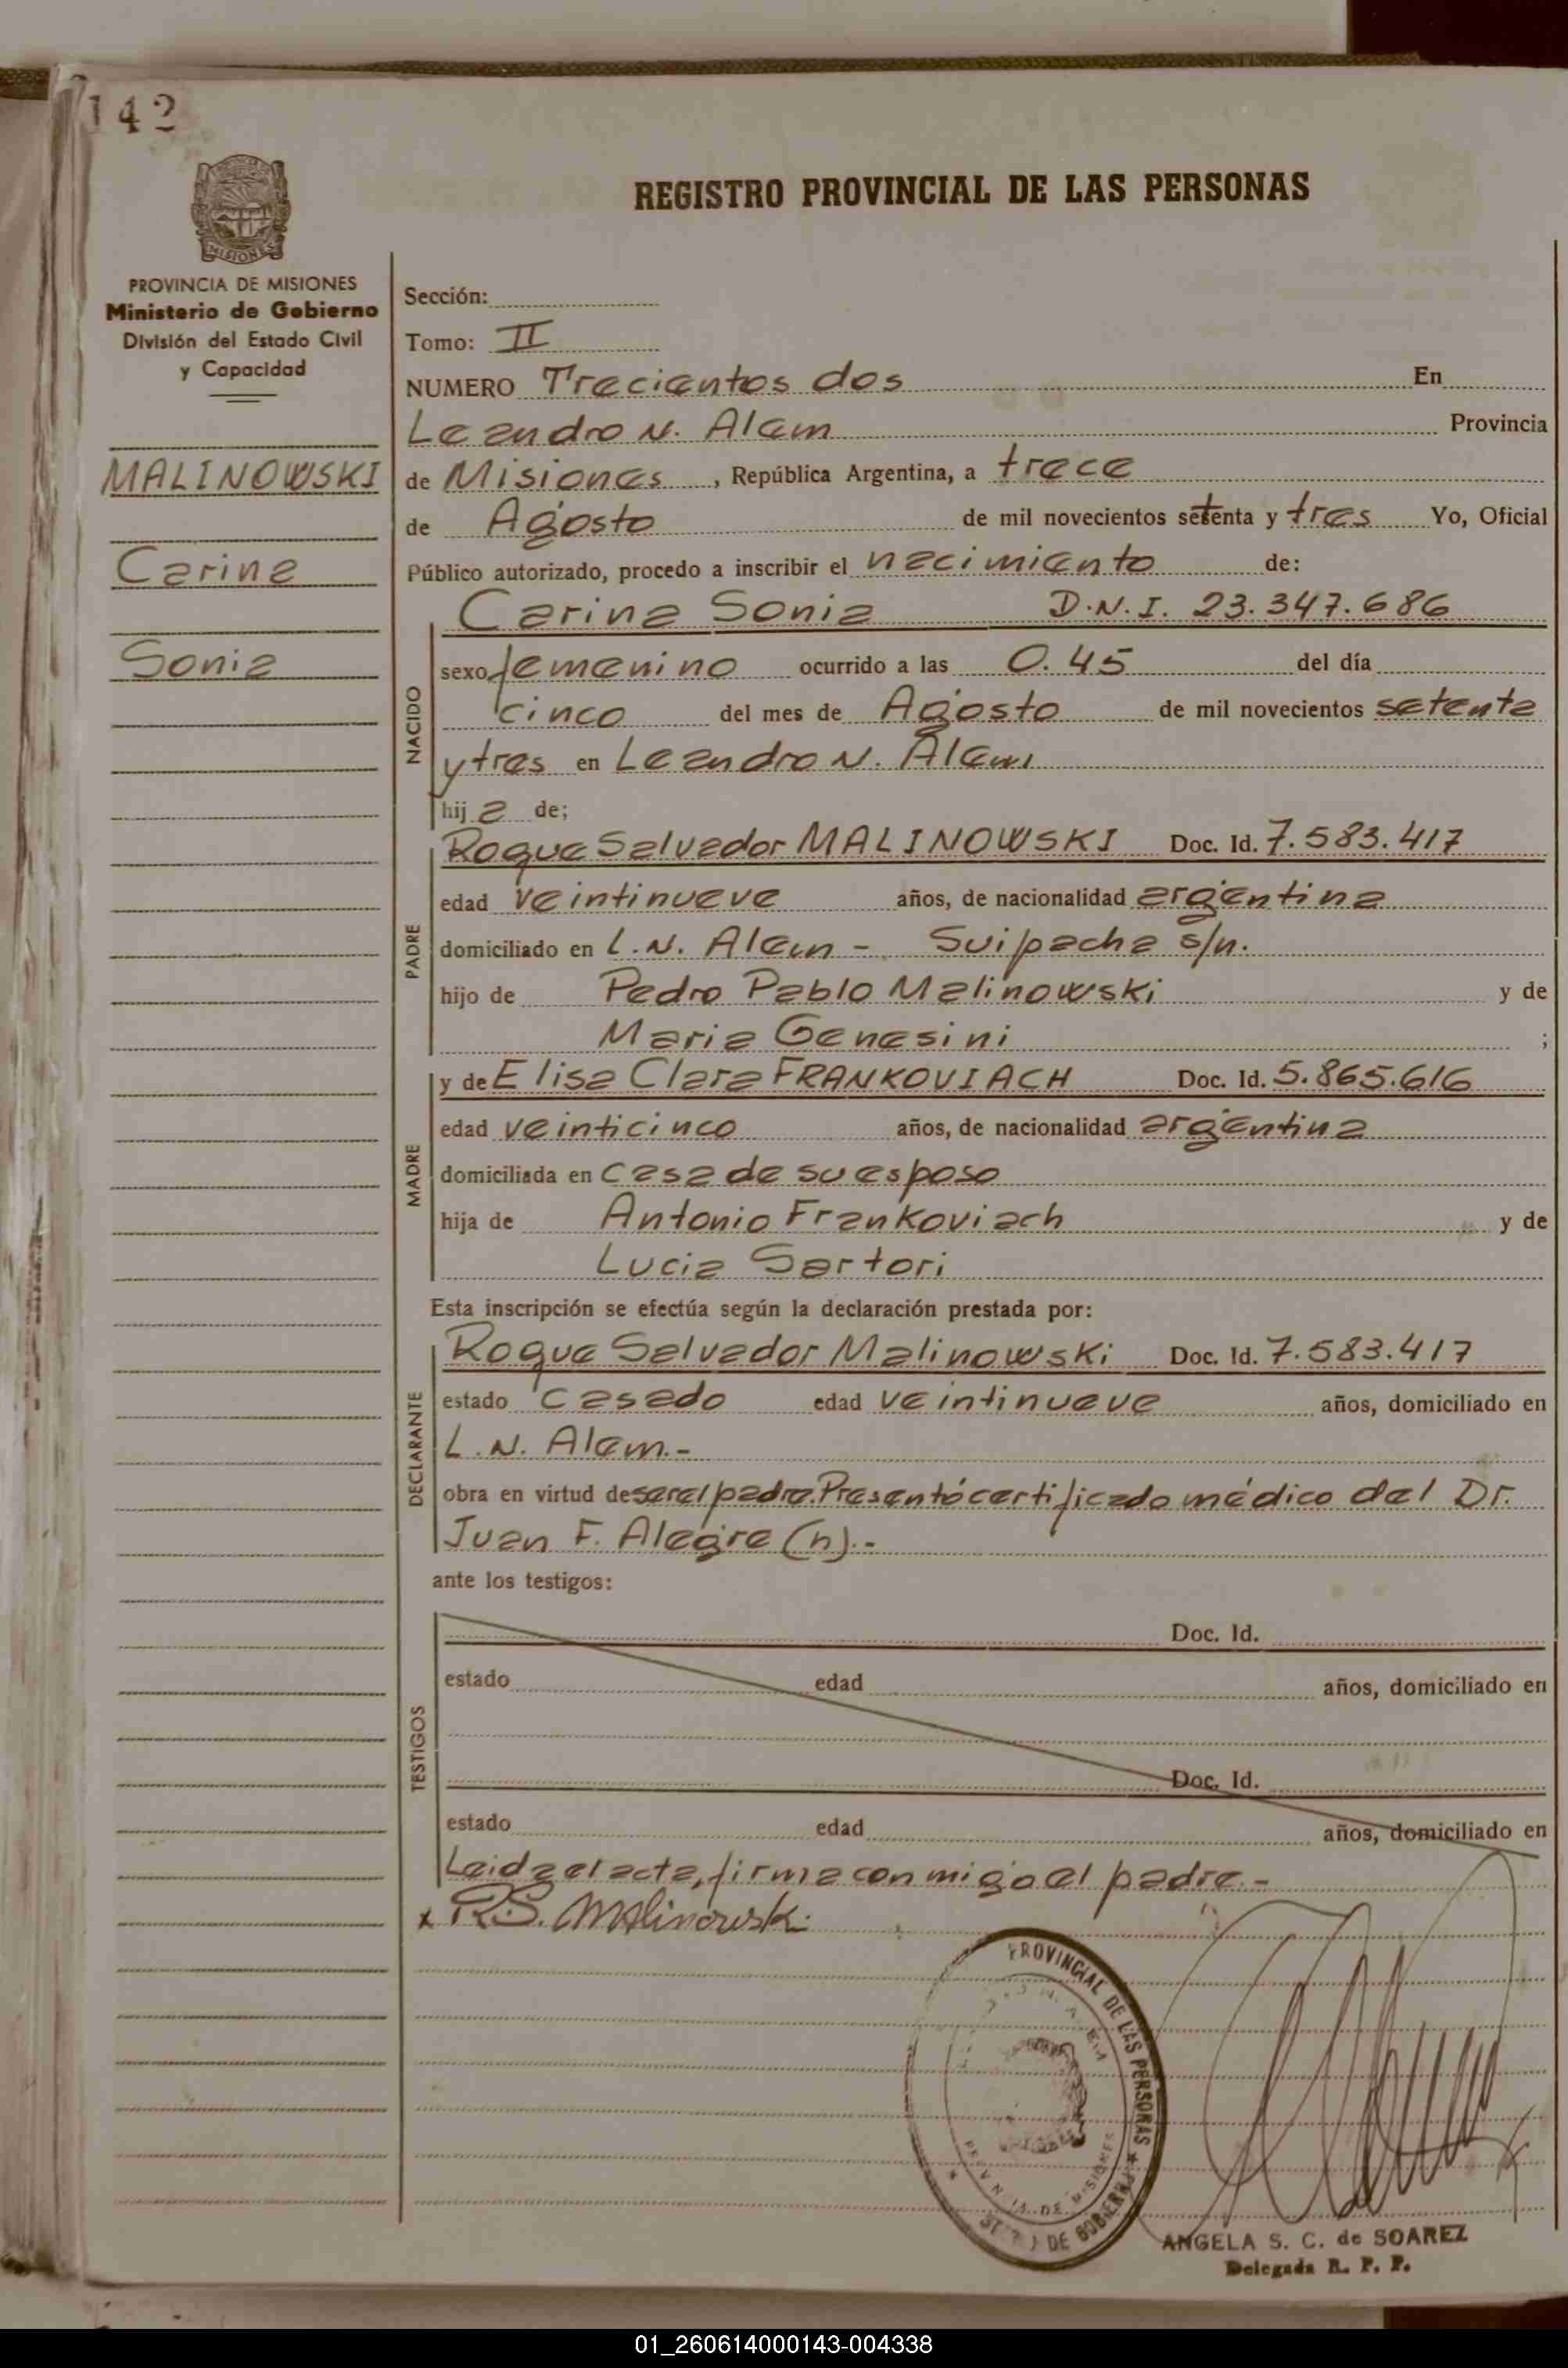 142
REGISTRO PROVINCIAL DE LAS PERSONAS
MISIONES
PROVINCIA DE MISIONES
Ministerio de Gobierno
División del Estado Civil
y Capacidad
MALINOWSKI
Carina
Sonia
Sección:
Tomo: II
NUMERO Trecientos dos En
Leandro N. Alem Provincia
de Misiones, República Argentina, a trece
de Agosto de mil novecientos setenta y tres Yo, Oficial
Público autorizado, procedo a inscribir el nacimiento de:
NACIDO
Carina Sonia D.N.I. 23.347.686
sexo femenino ocurrido a las 0.45 del día
cinco del mes de Agosto de mil novecientos setenta
y tres en Leandro N. Alem
hija de;
PADRE
Roque Salvador MALINOWSKI Doc. Id. 7.583.417
edad veintinueve años, de nacionalidad argentina
domiciliado en L.N. Alem - Suipacha s/n.
hijo de Pedro Pablo Malinowski y de
Maria Genesini ;
MADRE
y de Elisa Clara FRANKOVIACH Doc. Id. 5.865.616
edad veinticinco años, de nacionalidad argentina
domiciliada en casa de su esposo
hija de Antonio Frankoviach y de
Lucia Sartori
Esta inscripción se efectúa según la declaración prestada por:
DECLARANTE
Roque Salvador Malinowski Doc. Id. 7.583.417
estado casado edad veintinueve años, domiciliado en
L.N. Alem.-
obra en virtud de ser el padre. Presentó certificado médico del Dr.
Juan F. Alegre (h).-
ante los testigos:
TESTIGOS
Doc. Id.
estado edad años, domiciliado en
Doc. Id.
estado edad años, domiciliado en
Leida el acta, firma conmigo el padre.-
x R.S. Malinowski
PROVINCIAL DE LAS PERSONAS
DE GOBIERNO
DE MISIONES
ANGELA S. C. de SOAREZ
Delegada R. P. P.
01_260614000143-004338